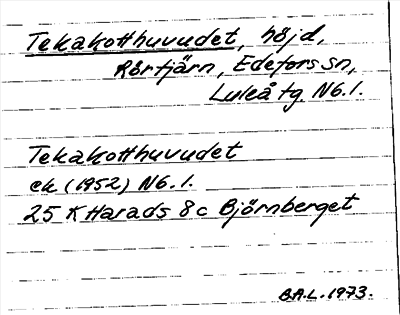 Tekakotthuvudet, höjd,
Rörtjärn, Edefors sn,
Luleå tg. Nb.l.
Tekakotthuvudet
ek (1952) Nb.l.
25 K Harads 8c Björnberget
B.A.L. 1973.